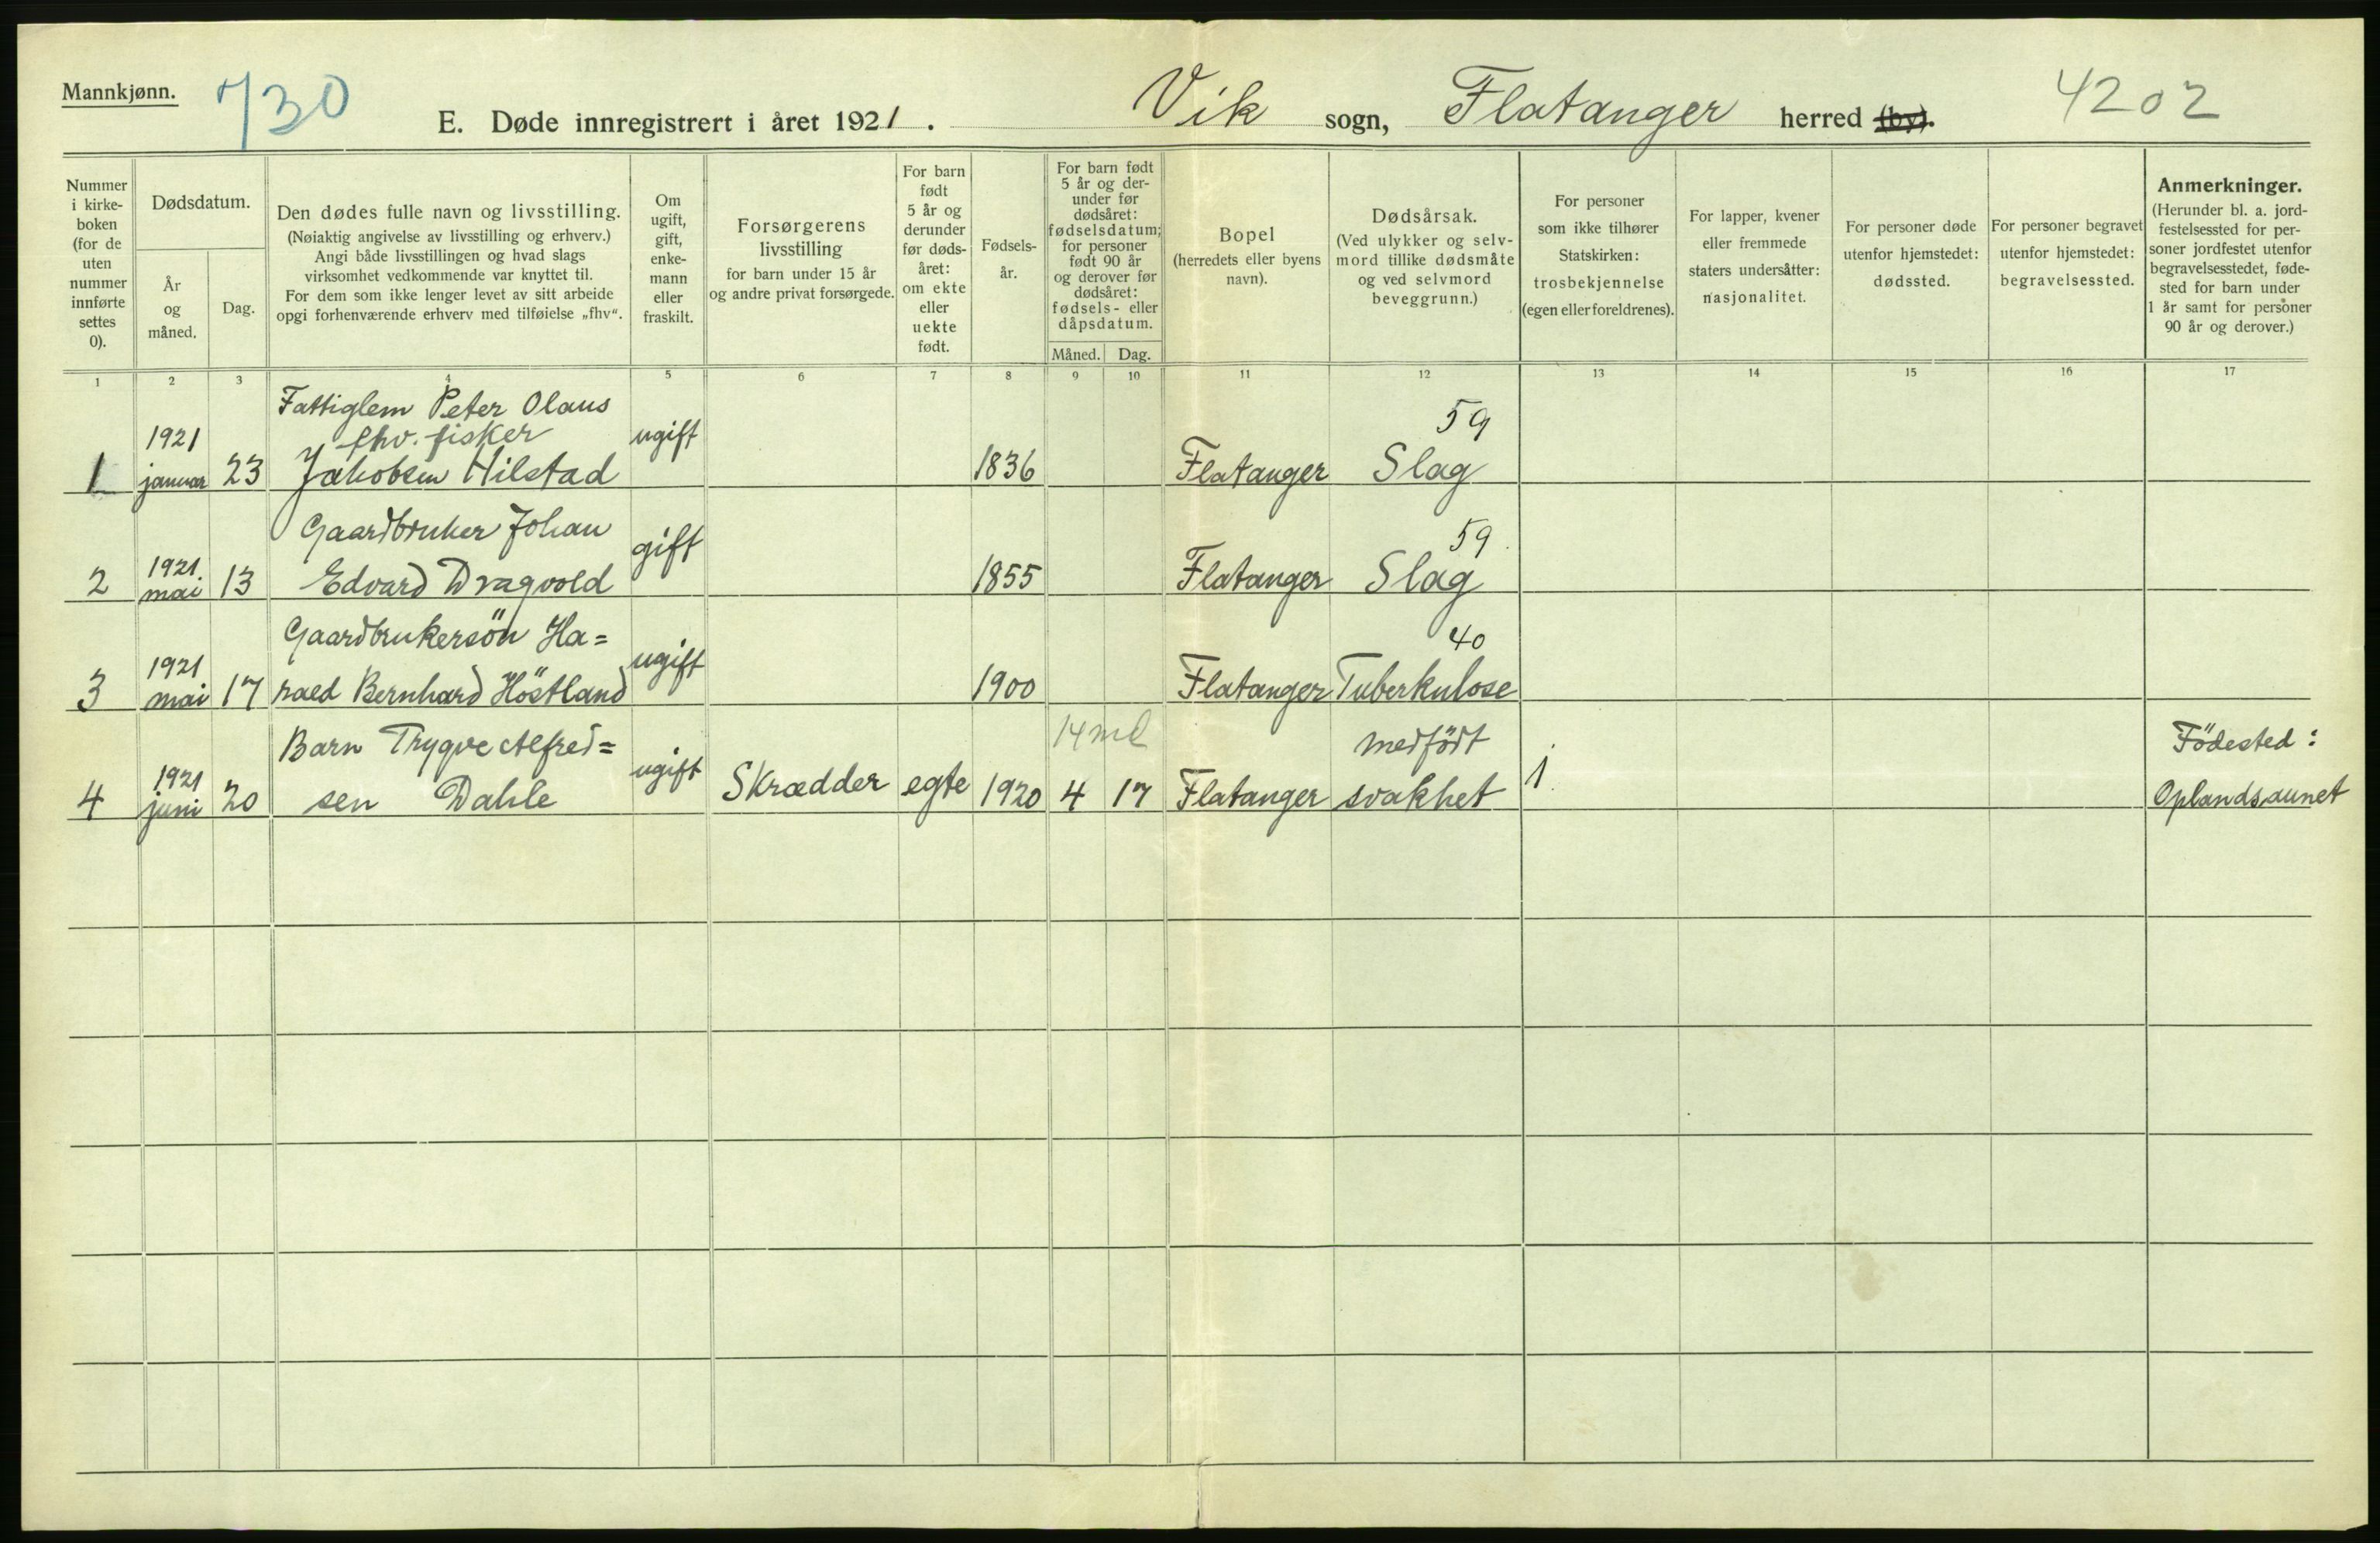 Mannkjønn.
730
E. Døde innregistrert i året 1921.
Vik sogn, Flatanger herred (by).
4202
Nummer i kirke-boken (for de uten nummer innførte settes 0).
Dødsdatum.
År og måned.
Dag.
Den dødes fulle navn og livsstilling.
(Nøiaktig angivelse av livsstilling og erhverv.)
Angi både livsstillingen og hvad slags
virksomhet vedkommende var knyttet til.
For dem som ikke lenger levet av sitt arbeide
opgi forhenværende erhverv med tilføielse „fhv“.
Om ugift, gift, enke-mann eller fraskilt.
Forsørgerens
livsstilling
for barn under 15 år
og andre privat forsørgede.
For barn født 5 år og derunder før døds-året: om ekte eller uekte født.
Fødsels-år.
For barn født 5 år og der-under før dødsåret: fødselsdatum; for personer født 90 år og derover før dødsåret: fødsels- eller dåpsdatum.
Måned. Dag.
Bopel
(herredets eller byens
navn).
Dødsårsak.
(Ved ulykker og selv-
mord tillike dødsmåte
og ved selvmord
beveggrunn.)
For personer
som ikke tilhører
Statskirken:
trosbekjennelse
(egen eller foreldrenes).
For lapper, kvener
eller fremmede
staters undersåtter:
nasjonalitet.
For personer døde
utenfor hjemstedet:
dødssted.
For personer begravet
utenfor hjemstedet:
begravelsessted.
Anmerkninger.
(Herunder bl. a. jord-
festelsessted for per-
soner jordfestet utenfor
begravelsesstedet, føde-
sted for barn under
1 år samt for personer
90 år og derover.)
1 2 3 4 5 6 7 8 9 10 11 12 13 14 15 16 17
Fattiglem Peter Olaus
1921 fhv. fisker ugift 59
1 januar 23 Jakobsen Hilstad 1836 Flatanger Slag
Gaardbruker Johan
1921 gift 59
2 mai 13 Edvard Dragvold 1855 Flatanger Slag
Gaardbrukersön Ha=
1921 ugift 40
3 mai 17 rald Bernhard Höstland 1900 Flatanger Tuberkulose
Barn Trygve Alfred= 14 ml medfödt Födested:
1921 ugift
4 juni 20 sen Dahle Skrædder egte 1920 4 17 Flatanger svakhet 1 Oplandsaunet